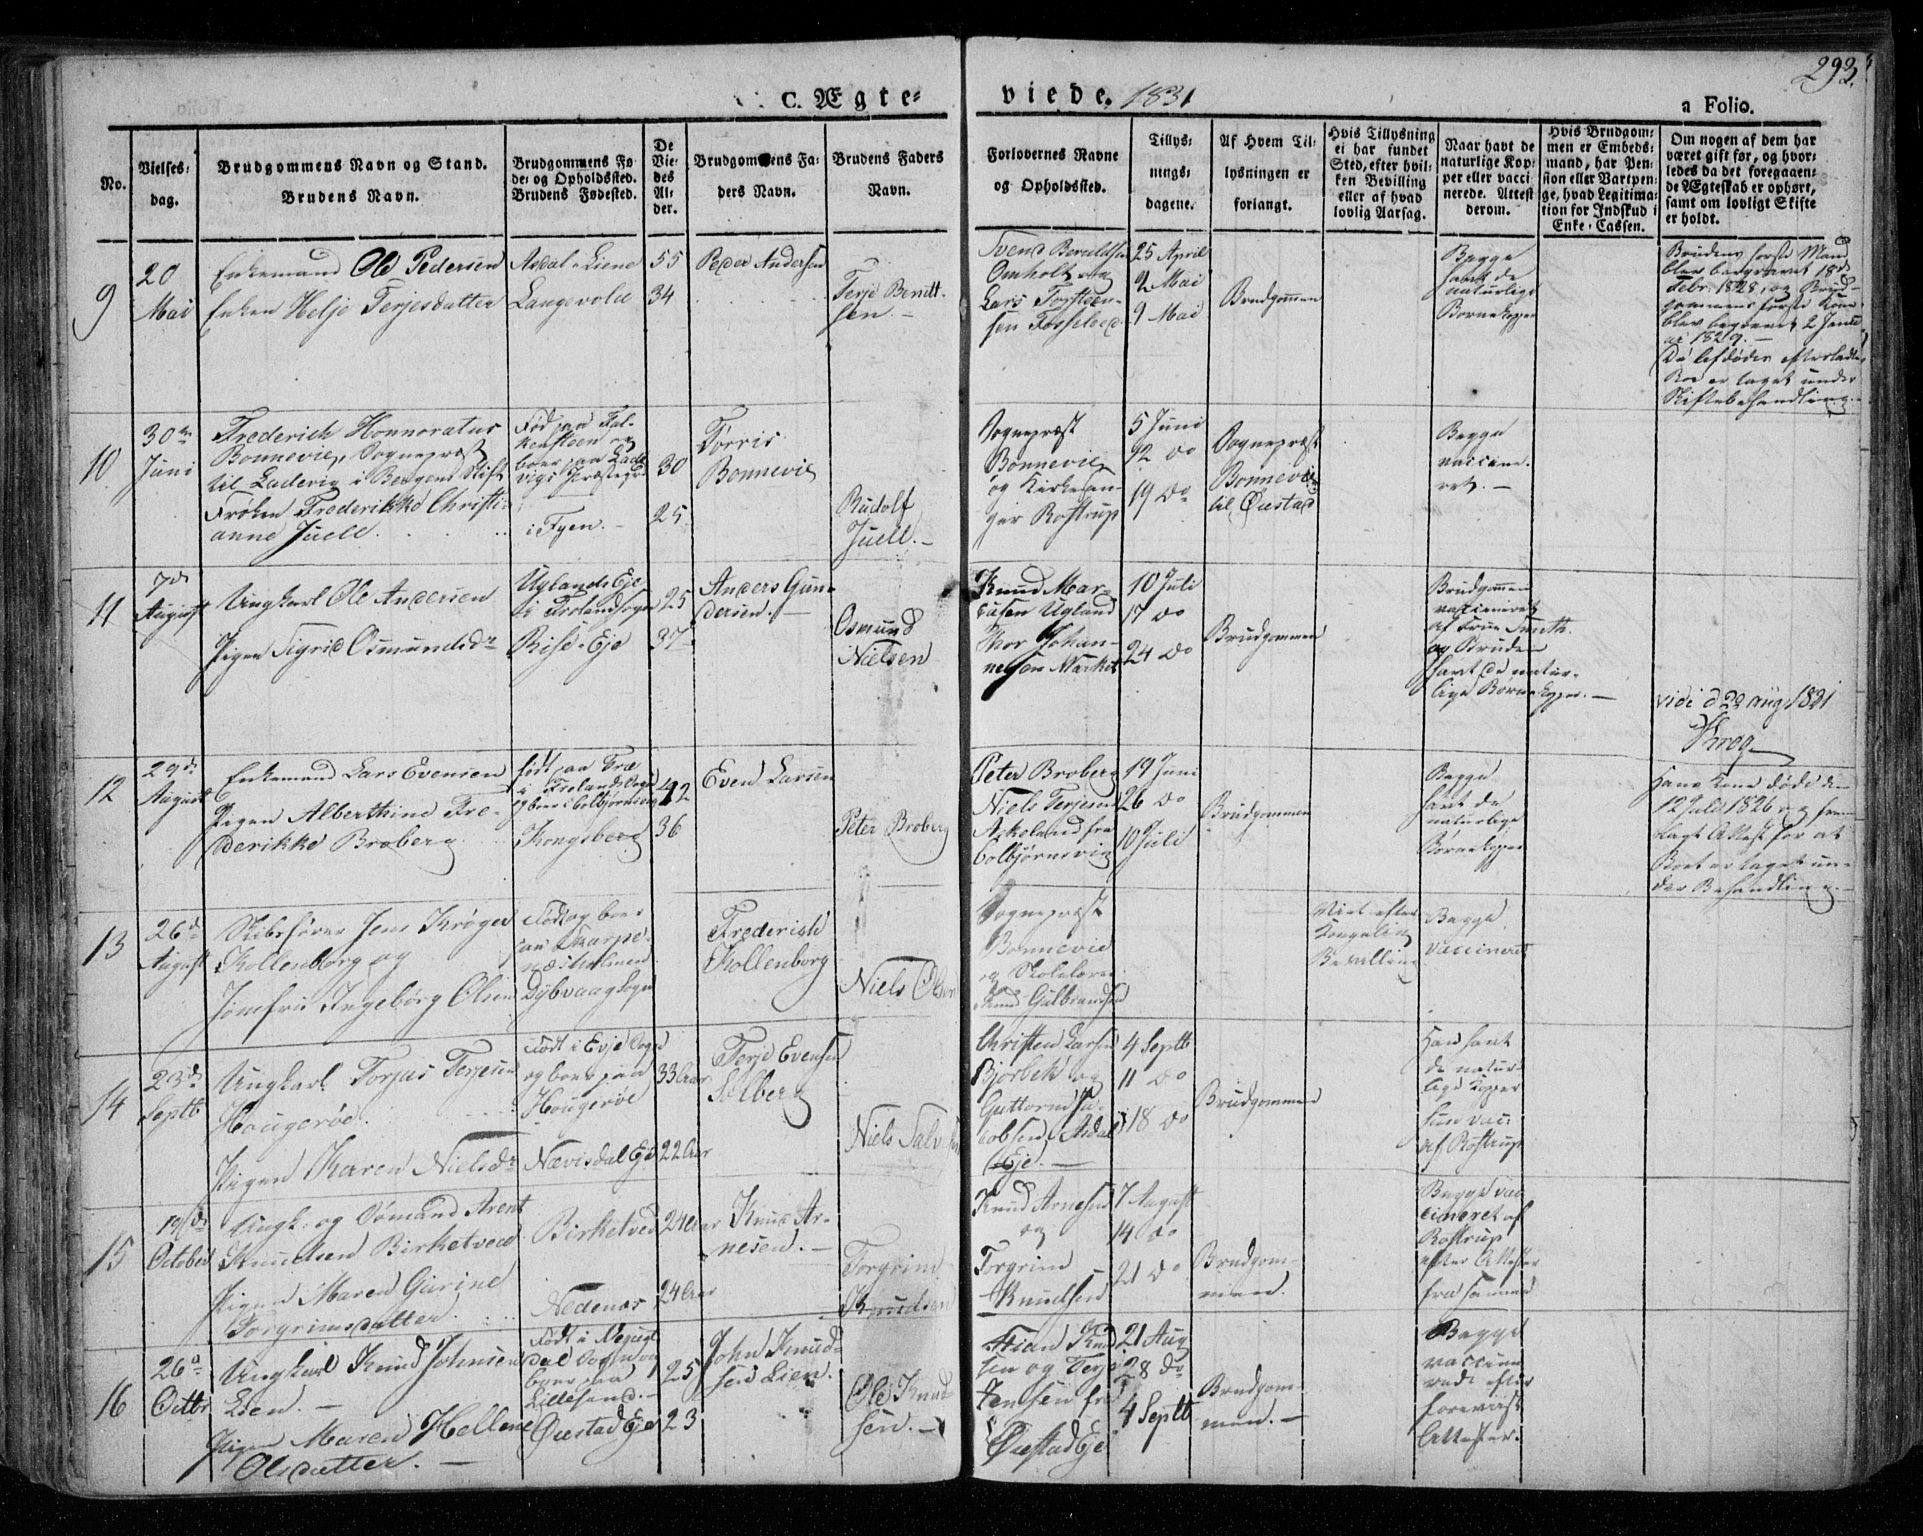 293.
C. Ægte-
viede. 1831
a Folio.
No.
Vielses-
dag.
Brudgommens Navn og Stand.
Brudens Navn.
Brudgommens Fø-
de- og Opholdssted.
Brudens Fødested.
De
Vie-
des
Al-
der.
Brudgommens Fa-
ders Navn.
Brudens Faders
Navn.
Forlovernes Navne
og Opholdssted.
Tillys-
nings-
dagene.
Af Hvem Til-
lysningen er
forlangt.
Hvis Tillysning
ei har fundet
Sted, efter hvil-
ken Bevilling
eller af hvad
lovlig Aarsag.
Naar havt de
naturlige Kop-
per eller vacci-
nerede. Attest
derom.
Hvis Brudgom-
men er Embeds-
mand, har Pen-
sion eller Vartpen-
ge, hvad Legitima-
tion for Indskud i
Enke-Cassen.
Om nogen af dem har
været gift før, og hvor-
ledes da det foregaaen-
de Ægteskab er ophørt,
samt om lovligt Skifte
er holdt.
9
20
Mai
Enkemand Ole Pedersen
Enken Helje Terjesdatter
Asdal-Liene
Langevold
55
34
Peder Andersen
Terje Berntt-
sen.
Svend
Omholt og
Lars Torsteen-
sen Fosseloed
25 April
2 Mai
9 Mai
Brudgommen
Begge
havt de
naturlige
Børnekopper
Brudens første Mand
blev begravet 18de
Febr: 1828, og Brud-
gommens første Kone
blev begravet 2 Janu-
ar 1829. —
De afdødes efterladte
Boe er taget under
Skiftebehandling. —
10
30te
Juni
Frederich Honnoratus
Bonnevie, Sognepræst
til Ladevig i Bergens Stift
Frøken Frederikke Christi-
anne Juell.
Fød paa Fal-
kensteen og
boer paa Lade-
vigs Præstegrd
i Fyen. —
30
25
Tørris
Bonnevie
Rudolf
Juell. —
Sognepræst
Bonnevie
og Kirkesan-
ger Rostrup
5 Juni
12 do
19 do
Sognepræst
Bonnevie
til Øiestad
Begge
vaccine-
ret. —
11
7de
August
Ungkarl Ole Andersen
Pigen Sigrid Osmundsdr
Uglands Eje
i Frolands Sogn
Rise-Eje
25
37
Anders Gun-
dersen. —
Osmund
Nielsen
Knud Mar-
cusen Ugland
Thor Johan-
nesen Market
10 Juli
17 do
24 do
Brudgommen
Brudgommen
vaccineret
af Frue Smith.
og Bruden
havt de natur-
lige Børnekopper. —
vidi d 22 Aug 1831
Krog
12
29de
August
Enkemand Lars Evensen
Pigen Alberthine Fre-
derikke Broberg
født paa Træ
i Frolands Sogn
og boer i Colbjørnsvig
Kongsberg
42
36
Even Larsen
Peter Broberg
Peter Broberg
Niels Terjesen
Askeland fra
Colbjørnsvig
19 Juni
26 do
10 Juli
Brudgommen
Begge
havt de
naturlige
Børnekopper
Hans Kone døde den
12 Juli 1826 og frem-
lagt Attest for at
Boet er taget un-
der Behandling. —
13
26de
August
Skibsfører Jens Krøger
Kollenborg og
Jomfru Ingeborg Olsen
Født og boer
paa Skarpe-
næsholmen
Dybvaag Sogn
Frederich
Kollenborg
Niels Olsen
Sognepræst
Bonnevie
og Skolelærer
Knud Gulbrandsen
Viet efter
Kongelig
Bevilling
Begge
vaccineret
14
23de
Septb
Ungkarl Torjus Terjesen
Hougerøe.
Pigen Karen Nielsdr
Født i Evje Sogn
og boer paa
Hougerøe
Nævisdal Eje
33 Aar
22 Aar
Terje Evensen
Solberg
Niels Salve
Christen Larsen
Bjorbek og
Guttorm Ja-
cobsen Asdal
Eje. —
4 Septb
11 do
18 do
Brudgommen
Han havt
de natur-
lige Kopper
Hun vac:
af Rostrup
15
19de
October
Ungk: og Sømand Arent
Knudsen Birketved
Pigen Maren Gurine
Torgrimsdatter.
Birketved
Nedenæs
24 Aar
24 Aar
Knud Ar-
nesen. —
Torgrim
Knudsen
Knud Arnesen
og
Torgrim
Knudsen
7 August
14 do
21 do
Brudgom-
men.
Begge vac-
cineret af
Rostrup
efter Attester
fra samme
16
26de
Octbr
Ungkarl Knud Johnsen
Lien. —
Pigen Maren Hellene
Olsdatter. —
Født i
dal Sogn og
boer paa
Lillesand. —
Øiestad Eje
25
23
John Knud-
sen Lien.
Ole Knud-
sen. —
Knud-
sen og Terje
Jensen fra
Øiestad Eje
21 Aug
28 do
4 Septb
Brudgom-
men. —
Begge
vaccine-
rede efter
foreviste
Attester.